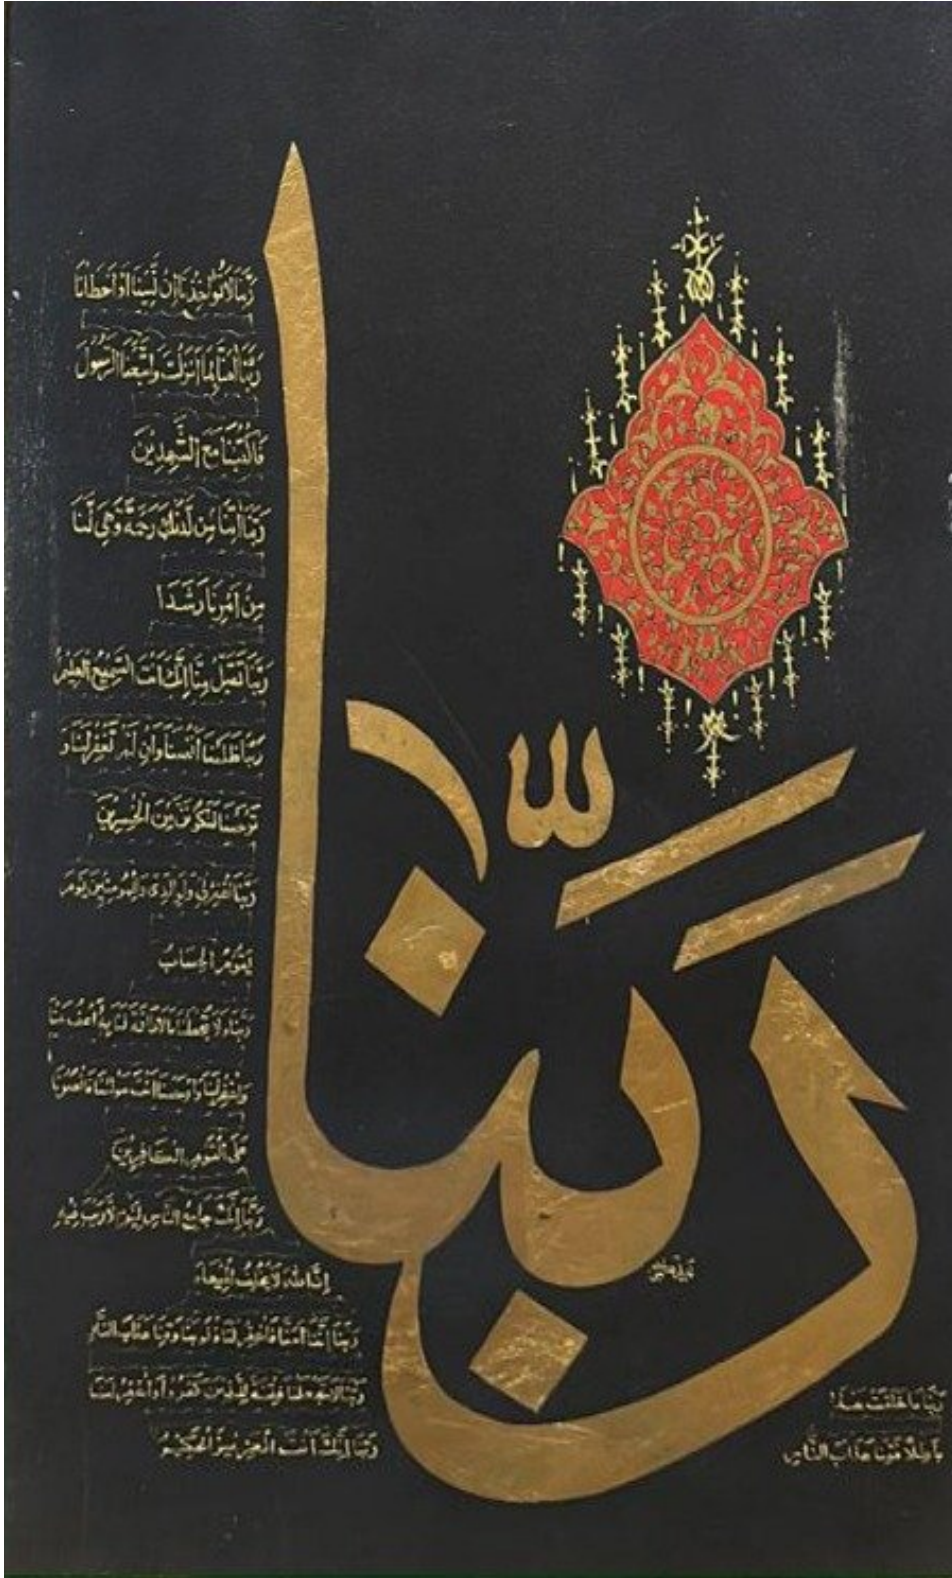 رَبَّنَا
رَبَّنَا لَا تُؤَاخِذْنَا إِنْ نَسِينَا أَوْ أَخْطَأْنَا
رَبَّنَا آمَنَّا بِمَا أَنْزَلْتَ وَاتَّبَعْنَا الرَّسُولَ
فَاكْتُبْنَا مَعَ الشَّاهِدِينَ
رَبَّنَا آتِنَا مِنْ لَدُنْكَ رَحْمَةً وَهَيِّئْ لَنَا
مِنْ أَمْرِنَا رَشَدًا
رَبَّنَا تَقَبَّلْ مِنَّا إِنَّكَ أَنْتَ السَّمِيعُ الْعَلِيمُ
رَبَّنَا ظَلَمْنَا أَنْفُسَنَا وَإِنْ لَمْ تَغْفِرْ لَنَا وَ
تَرْحَمْنَا لَنَكُونَنَّ مِنَ الْخَاسِرِينَ
رَبَّنَا اغْفِرْ لِي وَلِوَالِدَيَّ وَلِلْمُؤْمِنِينَ يَوْمَ
يَقُومُ الْحِسَابُ
رَبَّنَا وَلَا تُحَمِّلْنَا مَا لَا طَاقَةَ لَنَا بِهِ وَاعْفُ عَنَّا
وَاغْفِرْ لَنَا وَارْحَمْنَا أَنْتَ مَوْلَانَا فَانْصُرْنَا
عَلَى الْقَوْمِ الْكَافِرِينَ
رَبَّنَا إِنَّكَ جَامِعُ النَّاسِ لِيَوْمٍ لَا رَيْبَ فِيهِ
إِنَّ اللَّهَ لَا يُخْلِفُ الْمِيعَادَ
رَبَّنَا إِنَّنَا آمَنَّا فَاغْفِرْ لَنَا ذُنُوبَنَا وَقِنَا عَذَابَ النَّارِ
رَبَّنَا لَا تَجْعَلْنَا فِتْنَةً لِلَّذِينَ كَفَرُوا وَاغْفِرْ لَنَا
رَبَّنَا إِنَّكَ أَنْتَ الْعَزِيزُ الْحَكِيمُ
رَبَّنَا مَا خَلَقْتَ هَذَا
بَاطِلًا فَقِنَا عَذَابَ النَّارِ